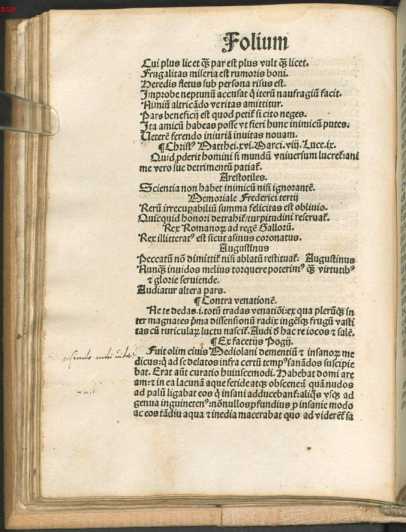 Folium
Cui plus licet q̃ par est plus vult q̃ licet.
Frugalitas miseria est rumoris boni.
Heredis fletus sub persona risus est.
Improbe neptunũ accusat q̇ iterũ naufragiũ facit.
Nimiũ altricãdo veritas amittitur.
Pars beneficij est quod petit᷑ si cito neges.
Ita amicũ habeas posse vt fieri hunc inimicũ putes.
Veterẽ ferendo iniuriã inuitas nouam.
¶ Christ⁹ Matthei .xvi. Marci .viij. Luce .ix.
Quid ꝓderit homini si mundũ vniuersum lucret᷑ ani
me vero sue detrimentũ patiat᷑.
Arestotiles.
Scientia non habet inimicũ nisi ignorantẽ.
Memoriale Frederici tertij
Rerũ irrecuꝑabiliũ summa felicitas est obliuio.
Quicquid honori detrahit᷑ turpitudini reseruat᷑.
Rex Romanoꝝ ad regẽ Gallorũ.
Rex illitterat⁹ est sicut asinus coronatus.
Augustinus
Peccatũ nõ dimittit᷑ nisi ablatũ restituat᷑. Augustinus
Nunq̃ inuidos melius torquere poterim⁹ q̃ virtutib⁹
et glorie seruiende.
Audiatur altera pars.
¶ Contra venationẽ.
Ne te dedas .i. totũ tradas venatiõi: ex qua plerũq̃ in
ter magnates
¶ Ex facetijs Pogij.
Fuit olim ciuis Mediolani dementiũ et insanoꝝ me
dicus q̇ ad se delatos infra certũ temp⁹ sanãdos suscipie
bat. Erat aũt curatio huiuscemodi. Habebat domi are
am: et in ea lacunã aque fetide atq̃ obscenẽ quã nudos
ad palũ ligabat eos q̇ insani adducebant᷑ aliq̃s vsq̃ ad
genua inguineten⁹: nõnullos ꝓfundius ꝑ insanie modo
ac eos tãdiu aqua et inedia macerabat quo ad viderẽt᷑ sa